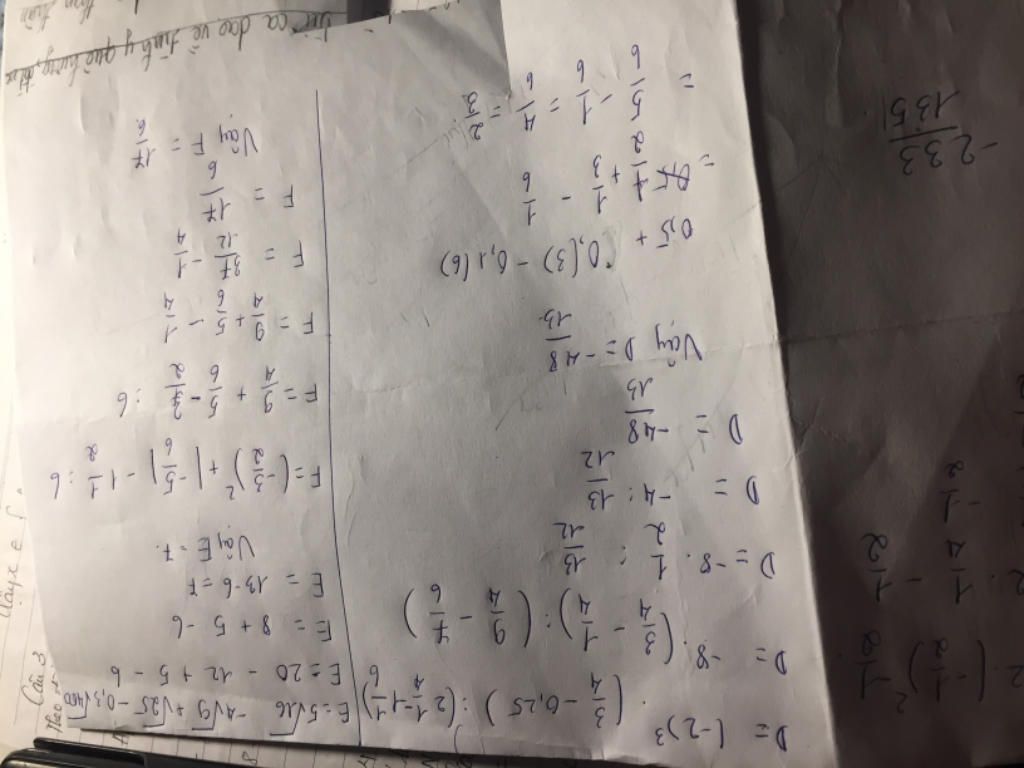 D = (-2)³ · (3/4 - 0,25) : (2 1/4 - 1 1/6)
D = -8 · (3/4 - 1/4) : (9/4 - 7/6)
D = -8 · 1/2 : 13/12
D = -4 : 13/12
D = -48/13
Vậy D = -48/13
0,5 + 0,(3) - 0,1(6)
= 1/2 + 1/3 - 1/6
= 5/6 - 1/6 = 4/6 = 2/3
E = 5√16 - 4√9 + √25 - 0,3√400
E = 20 - 12 + 5 - 6
E = 8 + 5 - 6
E = 13 - 6 = 7
Vậy E = 7.
F = (-3/2)² + |-5/6| - 1 1/2 : 6
F = 9/4 + 5/6 - 3/2 : 6
F = 9/4 + 5/6 - 1/4
F = 37/12 - 1/4
F = 17/6
Vậy F = 17/6
Câu 3
ca dao về tình yêu quê hương
-233
1351